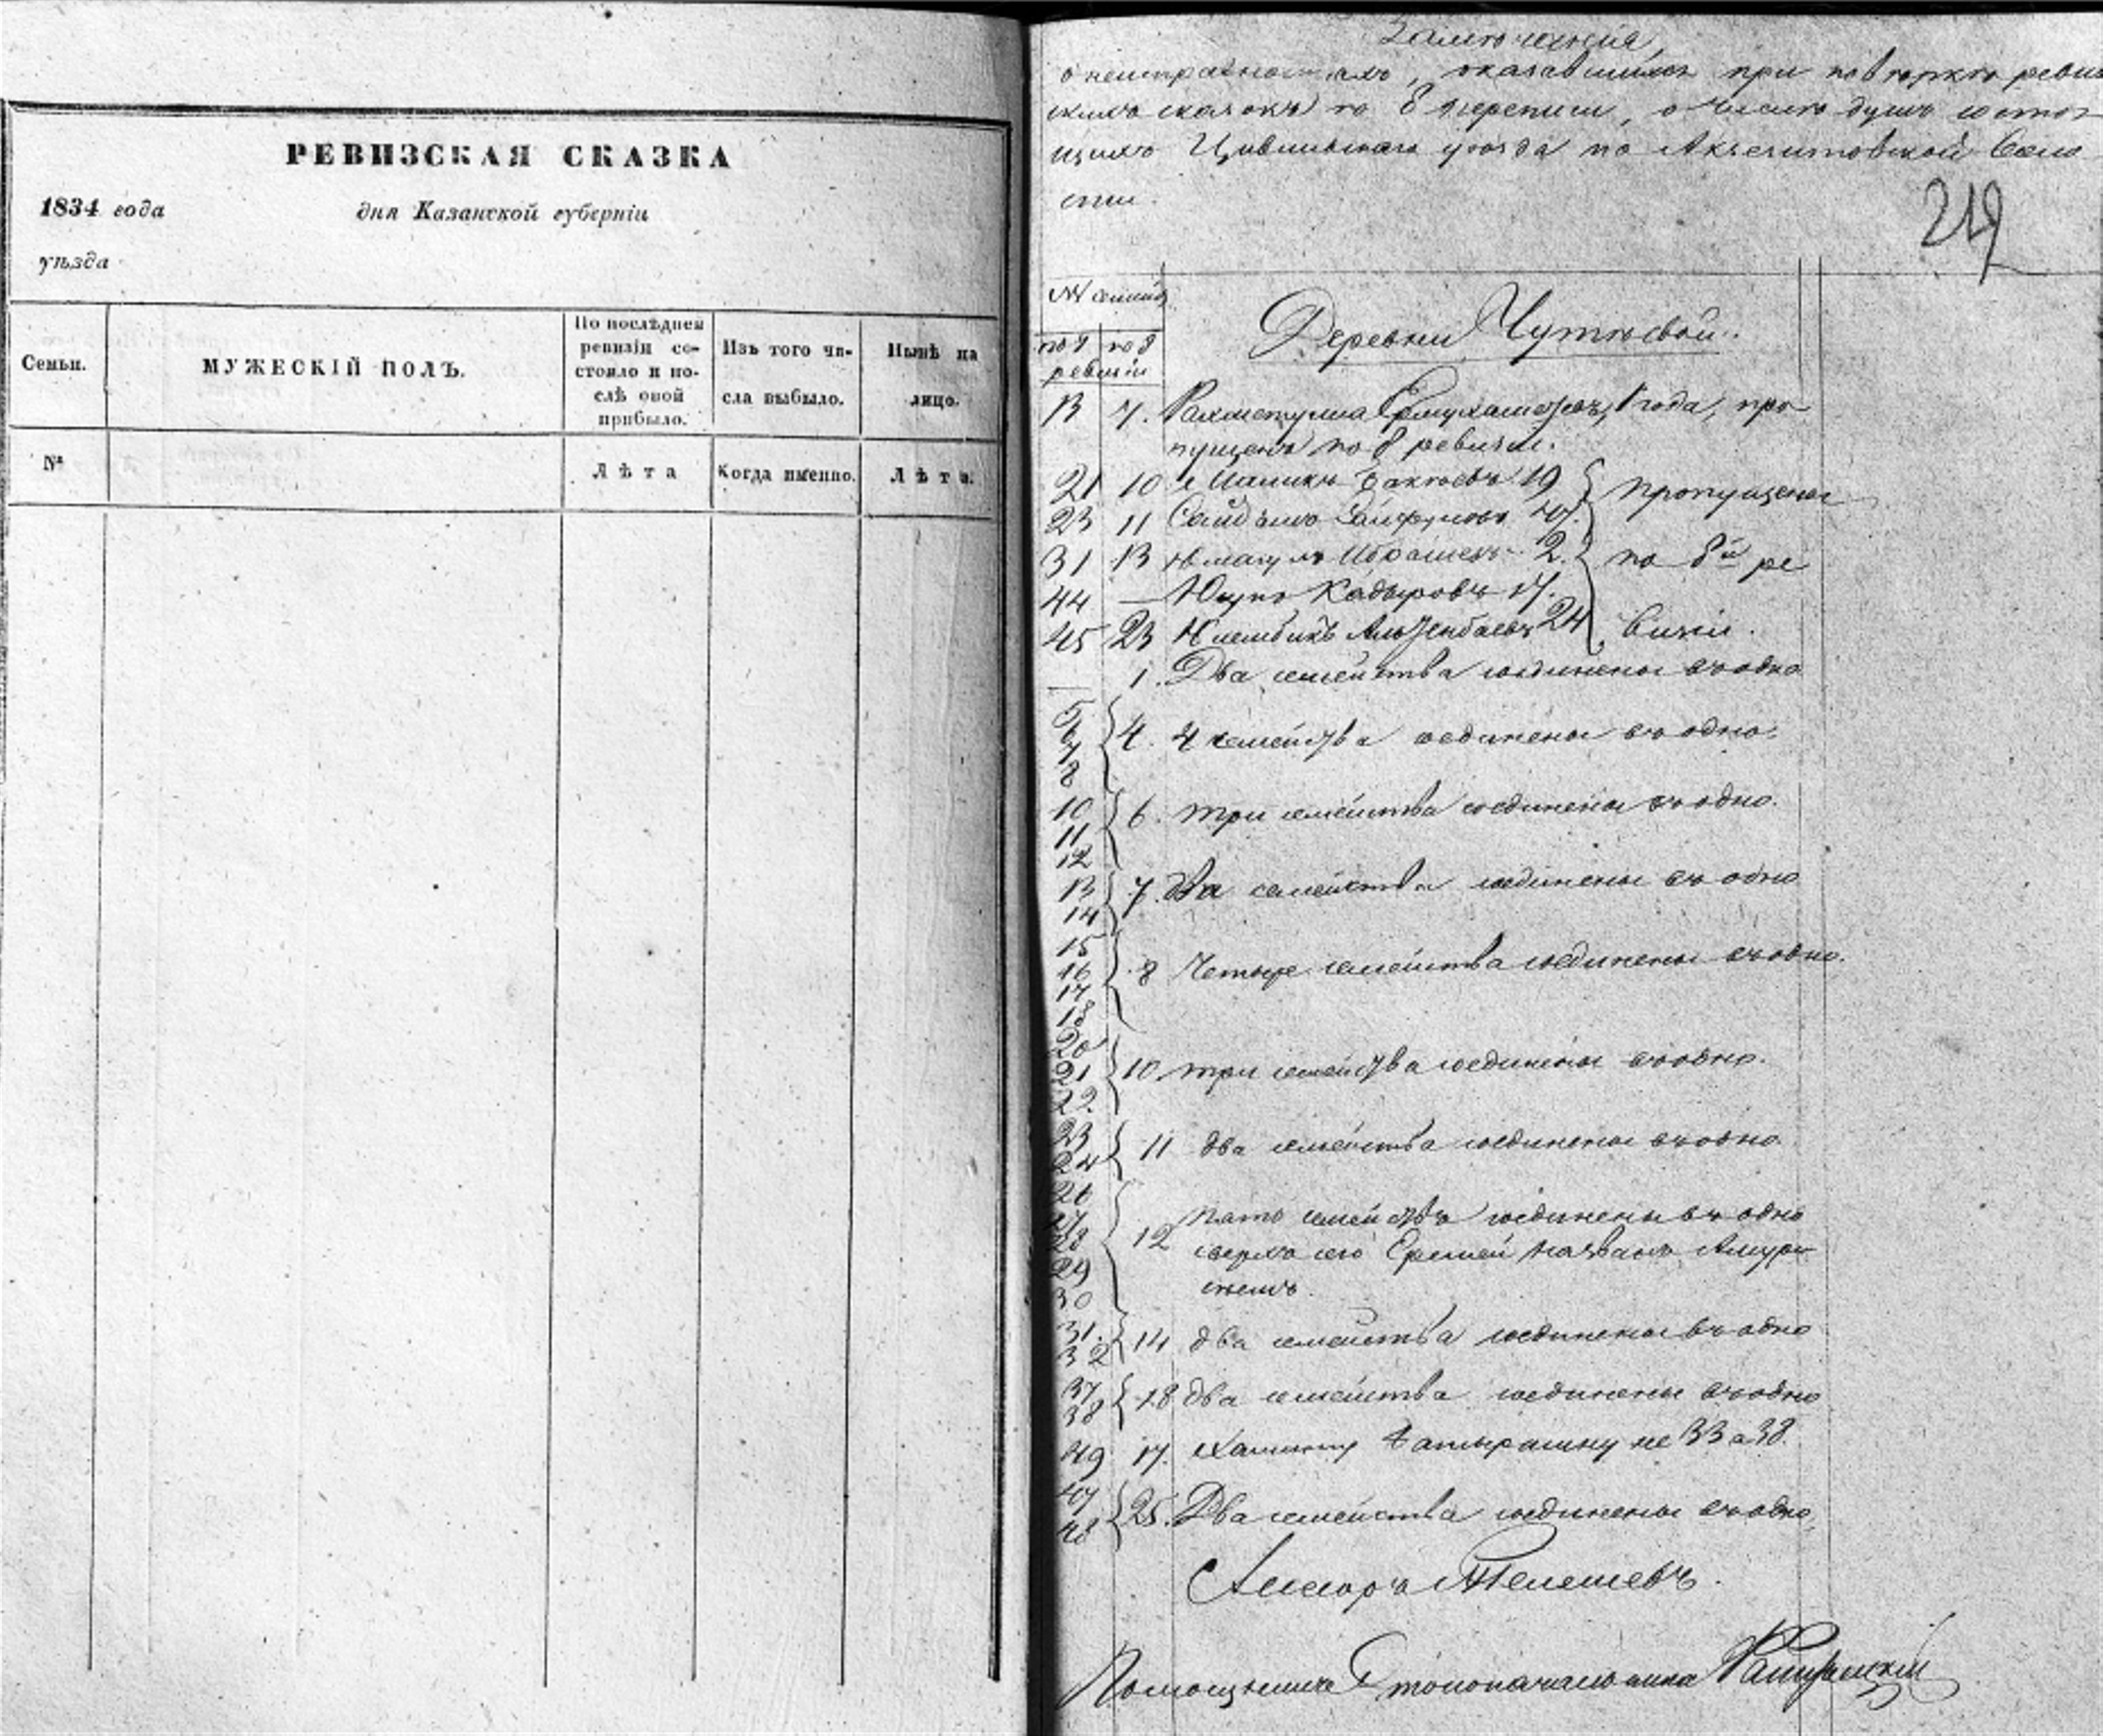 РЕВИЗСКАЯ СКАЗКА
1834 года дня Казанской губерніи
уѣзда
Семьи.
МУЖЕСКІЙ ПОЛЪ.
По послѣдней
ревизіи со-
стояло и по-
слѣ оной
прибыло.
Изъ того чи-
сла выбыло.
Нынѣ на
лицо.
№
Лѣта
Когда именно.
Лѣта.
Замѣчанія,
о неисправностяхъ, оказавшихся при повѣркѣ ревиз
скихъ сказокъ по 8 переписи, о числѣ душъ состоя
щихъ Цивильскаго уѣзда по Воло
сти.
219
№ семей
по 7 по 8
ревизіи
Деревни Чутѣевой.
13 7. 1 года, про
пущенъ по 8 ревизіи.
21 10 19 пропущены
23 11 47.
31 13 Ибрашевъ 2. по 8й ре
44 — Юсупъ Кадыровъ 17.
45 23 24 визіи.
1. Два семейства соединены въ одно
5
6
7
8
4. 4 семейства соединены въ одно.
10
11
12
6. три семейства соединены въ одно.
13
14
7. два семейства соединены въ одно
15
16
17
18
8 Четыре семейства соединены въ одно.
20
21
22.
10. три семейства соединены въ одно.
23
24
11 два семейства соединены въ одно.
26
27
28
29
30
12 пять семействъ соединены въ одно
сверхъ сего Еремей названъ
31.
32
14 два семейства соединены въ одно
37
38
18 два семейства соединены въ одно
49 17. не 33 а 38.
47
48
25. Два семейства соединены въ одно,
Ассесоръ Телешевъ.
Помощникъ Столоначальника